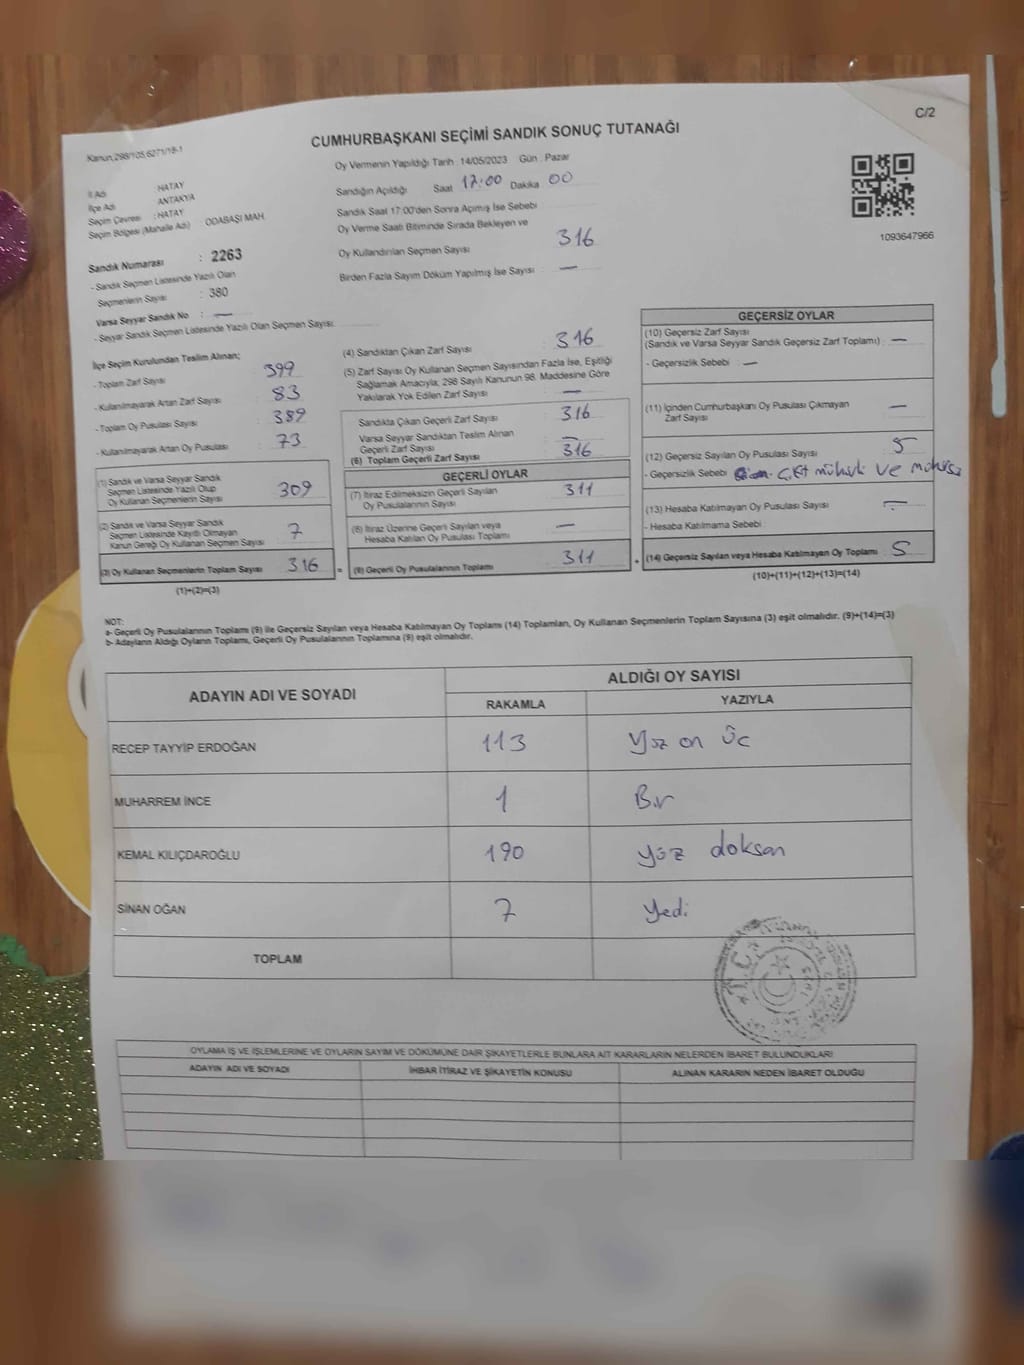 C/2
CUMHURBAŞKANI SEÇİMİ SANDIK SONUÇ TUTANAĞI
Kanun,298/105,6271/18-1
Oy Vermenin Yapıldığı Tarih : 14/05/2023 Gün : Pazar
İl Adı : HATAY
İlçe Adı : ANTAKYA
Seçim Çevresi : HATAY
Seçim Bölgesi (Mahalle Adı) : ODABAŞI MAH.
Sandığın Açıldığı Saat 17:00 Dakika 00
Sandık Saat 17:00'den Sonra Açılmış İse Sebebi
Oy Verme Saati Bitiminde Sırada Bekleyen ve
Oy Kullandırılan Seçmen Sayısı 316
Birden Fazla Sayım Döküm Yapılmış İse Sayısı —
1093647966
Sandık Numarası : 2263
- Sandık Seçmen Listesinde Yazılı Olan
Seçmenlerin Sayısı : 380
Varsa Seyyar Sandık No : —
- Seyyar Sandık Seçmen Listesinde Yazılı Olan Seçmen Sayısı
İlçe Seçim Kurulundan Teslim Alınan;
- Toplam Zarf Sayısı : 399
- Kullanılmayarak Artan Zarf Sayısı : 83
- Toplam Oy Pusulası Sayısı : 389
- Kullanılmayarak Artan Oy Pusulası : 73
(1) Sandık ve Varsa Seyyar Sandık
Seçmen Listesinde Yazılı Olup
Oy Kullanan Seçmenlerin Sayısı 309
(2) Sandık ve Varsa Seyyar Sandık
Seçmen Listesinde Kayıtlı Olmayan
Kanun Gereği Oy Kullanan Seçmen Sayısı 7
(3) Oy Kullanan Seçmenlerin Toplam Sayısı 316 =
(1)+(2)=(3)
(4) Sandıktan Çıkan Zarf Sayısı 316
(5) Zarf Sayısı Oy Kullanan Seçmen Sayısından Fazla İse, Eşitliği
Sağlamak Amacıyla, 298 Sayılı Kanunun 98. Maddesine Göre
Yakılarak Yok Edilen Zarf Sayısı —
Sandıkta Çıkan Geçerli Zarf Sayısı 316
Varsa Seyyar Sandıktan Teslim Alınan
Geçerli Zarf Sayısı —
(6) Toplam Geçerli Zarf Sayısı 316
GEÇERLİ OYLAR
(7) İtiraz Edilmeksizin Geçerli Sayılan
Oy Pusulalarının Sayısı 311
(8) İtiraz Üzerine Geçerli Sayılan veya
Hesaba Katılan Oy Pusulası Toplamı —
(9) Geçerli Oy Pusulalarının Toplamı 311 +
GEÇERSİZ OYLAR
(10) Geçersiz Zarf Sayısı
(Sandık ve Varsa Seyyar Sandık Geçersiz Zarf Toplamı) : —
- Geçersizlik Sebebi : —
(11) İçinden Cumhurbaşkanı Oy Pusulası Çıkmayan
Zarf Sayısı —
(12) Geçersiz Sayılan Oy Pusulası Sayısı 5
- Geçersizlik Sebebi Çift mühürlü ve
(13) Hesaba Katılmayan Oy Pusulası Sayısı : —
- Hesaba Katılmama Sebebi
(14) Geçersiz Sayılan veya Hesaba Katılmayan Oy Toplamı 5
(10)+(11)+(12)+(13)=(14)
NOT:
a- Geçerli Oy Pusulalarının Toplamı (9) ile Geçersiz Sayılan veya Hesaba Katılmayan Oy Toplamı (14) Toplamları, Oy Kullanan Seçmenlerin Toplam Sayısına (3) eşit olmalıdır. (9)+(14)=(3)
b- Adayların Aldığı Oyların Toplamı, Geçerli Oy Pusulalarının Toplamına (9) eşit olmalıdır.
ADAYIN ADI VE SOYADI ALDIĞI OY SAYISI
RAKAMLA YAZIYLA
RECEP TAYYİP ERDOĞAN 113 Yüz on üç
MUHARREM İNCE 1 Bir
KEMAL KILIÇDAROĞLU 190 yüz doksan
SİNAN OĞAN 7 Yedi
TOPLAM
T.C.
OYLAMA İŞ VE İŞLEMLERİNE VE OYLARIN SAYIM VE DÖKÜMÜNE DAİR ŞİKAYETLERLE BUNLARA AİT KARARLARIN NELERDEN İBARET BULUNDUKLARI
ADAYIN ADI VE SOYADI İHBAR İTİRAZ VE ŞİKAYETİN KONUSU ALINAN KARARIN NEDEN İBARET OLDUĞU